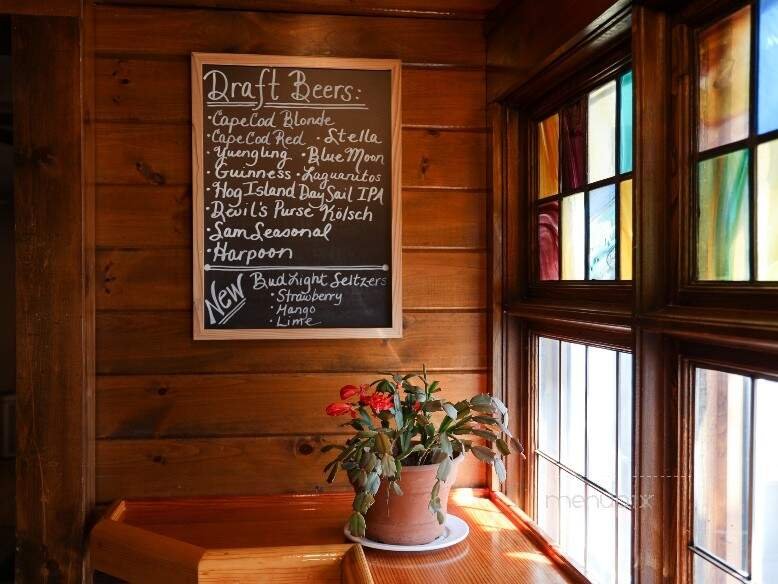 Draft Beers:
• Cape Cod Blonde
• Cape Cod Red • Stella
• Yuengling • Blue Moon
• Guinness • Laguanitos
• Hog Island Day Sail IPA
• Devil's Purse Kölsch
• Sam Seasonal
• Harpoon
New Bud Light Seltzers
• Strawberry
• Mango
• Lime